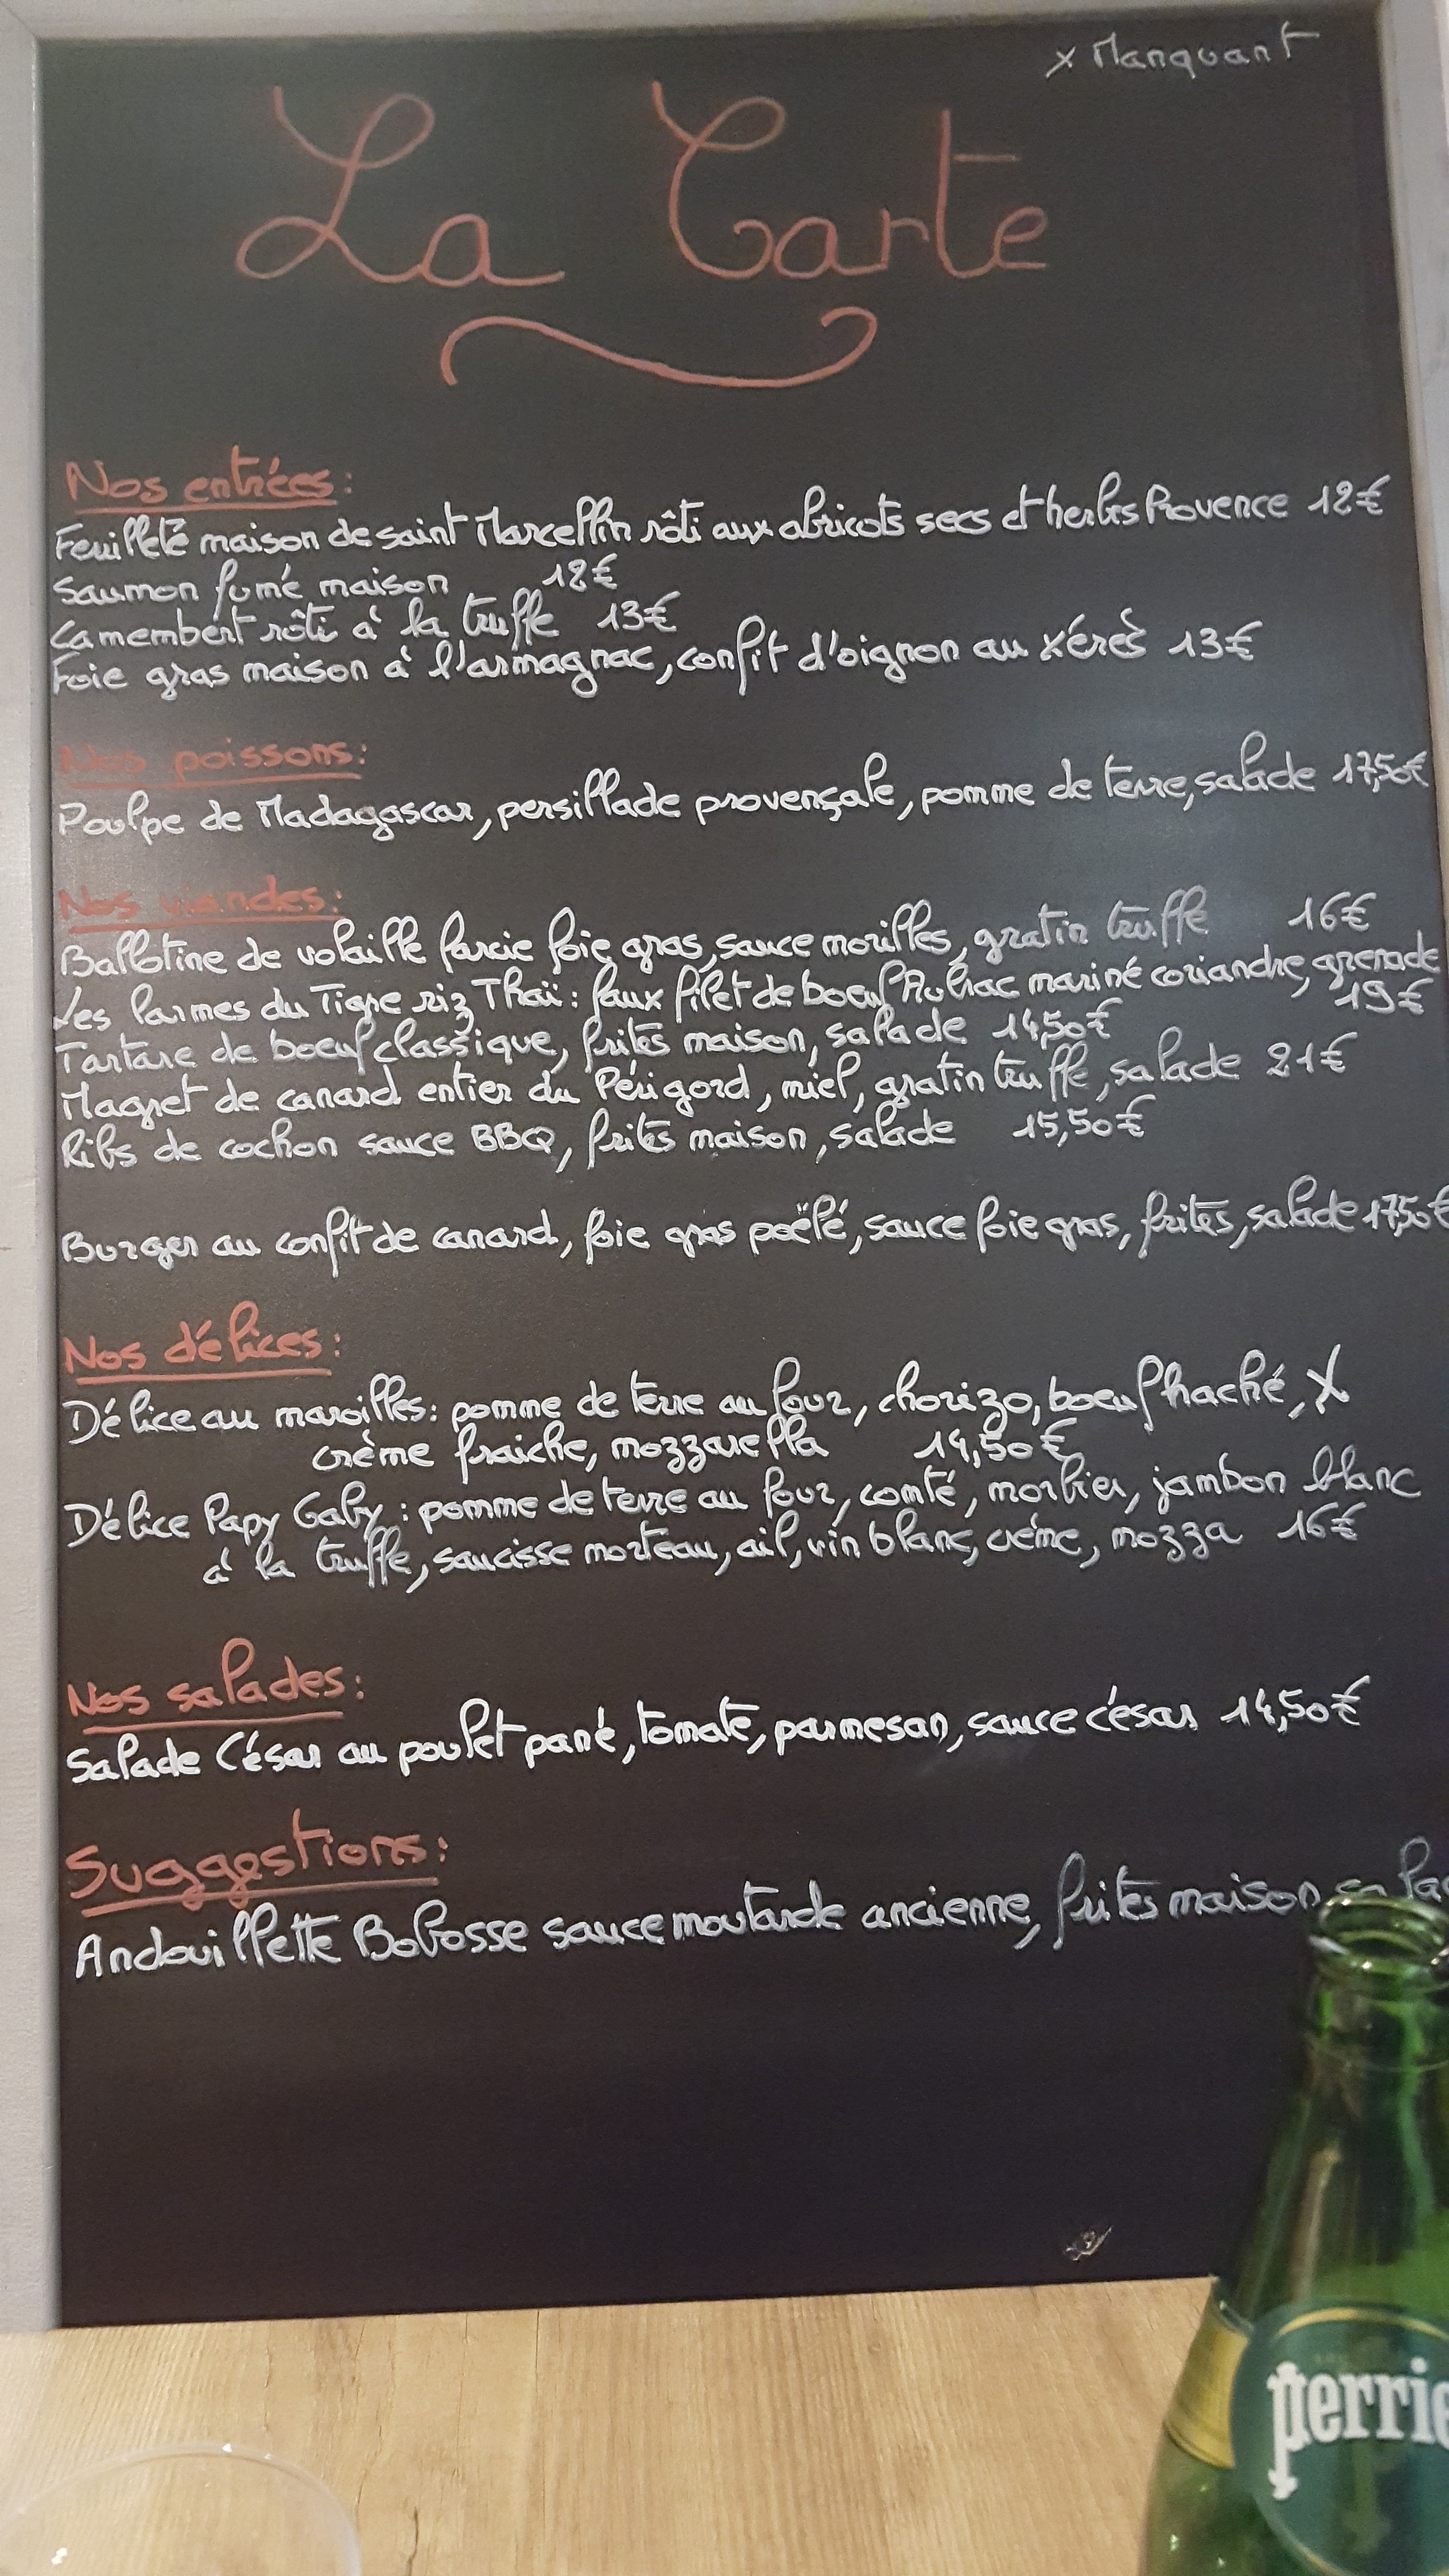 x Manquant
La Carte
Nos entrées:
Feuilleté maison de saint Marcellin rôti aux abricots secs et herbes Provence 12€
Saumon fumé maison 12€
Camembert rôti à la truffe 13€
Foie gras maison à l'armagnac, confit d'oignon au xérès 13€
Nos poissons:
Poulpe de Madagascar, persillade provençale, pomme de terre, salade 17,50€
Nos viandes:
Ballotine de volaille farcie foie gras, sauce morilles, gratin truffe 16€
Les larmes du Tigre riz Thaï: faux filet de boeuf Aubrac mariné coriandre, grenade
19€
Tartare de boeuf classique, frites maison, salade 14,50€
Magret de canard entier du Périgord, miel, gratin truffe, salade 21€
Ribs de cochon sauce BBQ, frites maison, salade 15,50€
Burger au confit de canard, foie gras poëlé, sauce foie gras, frites, salade 17,50€
Nos délices:
Délice au maroilles: pomme de terre au four, chorizo, boeuf haché, X
crème fraiche, mozzarella 14,50€
Délice Papy Gaby: pomme de terre au four, comté, morbier, jambon blanc
à la truffe, saucisse morteau, ail, vin blanc, crème, mozza 16€
Nos salades:
Salade César au poulet pané, tomate, parmesan, sauce césar 14,50€
Suggestions:
Andouillette Bobosse sauce moutarde ancienne, frites maison
perrie